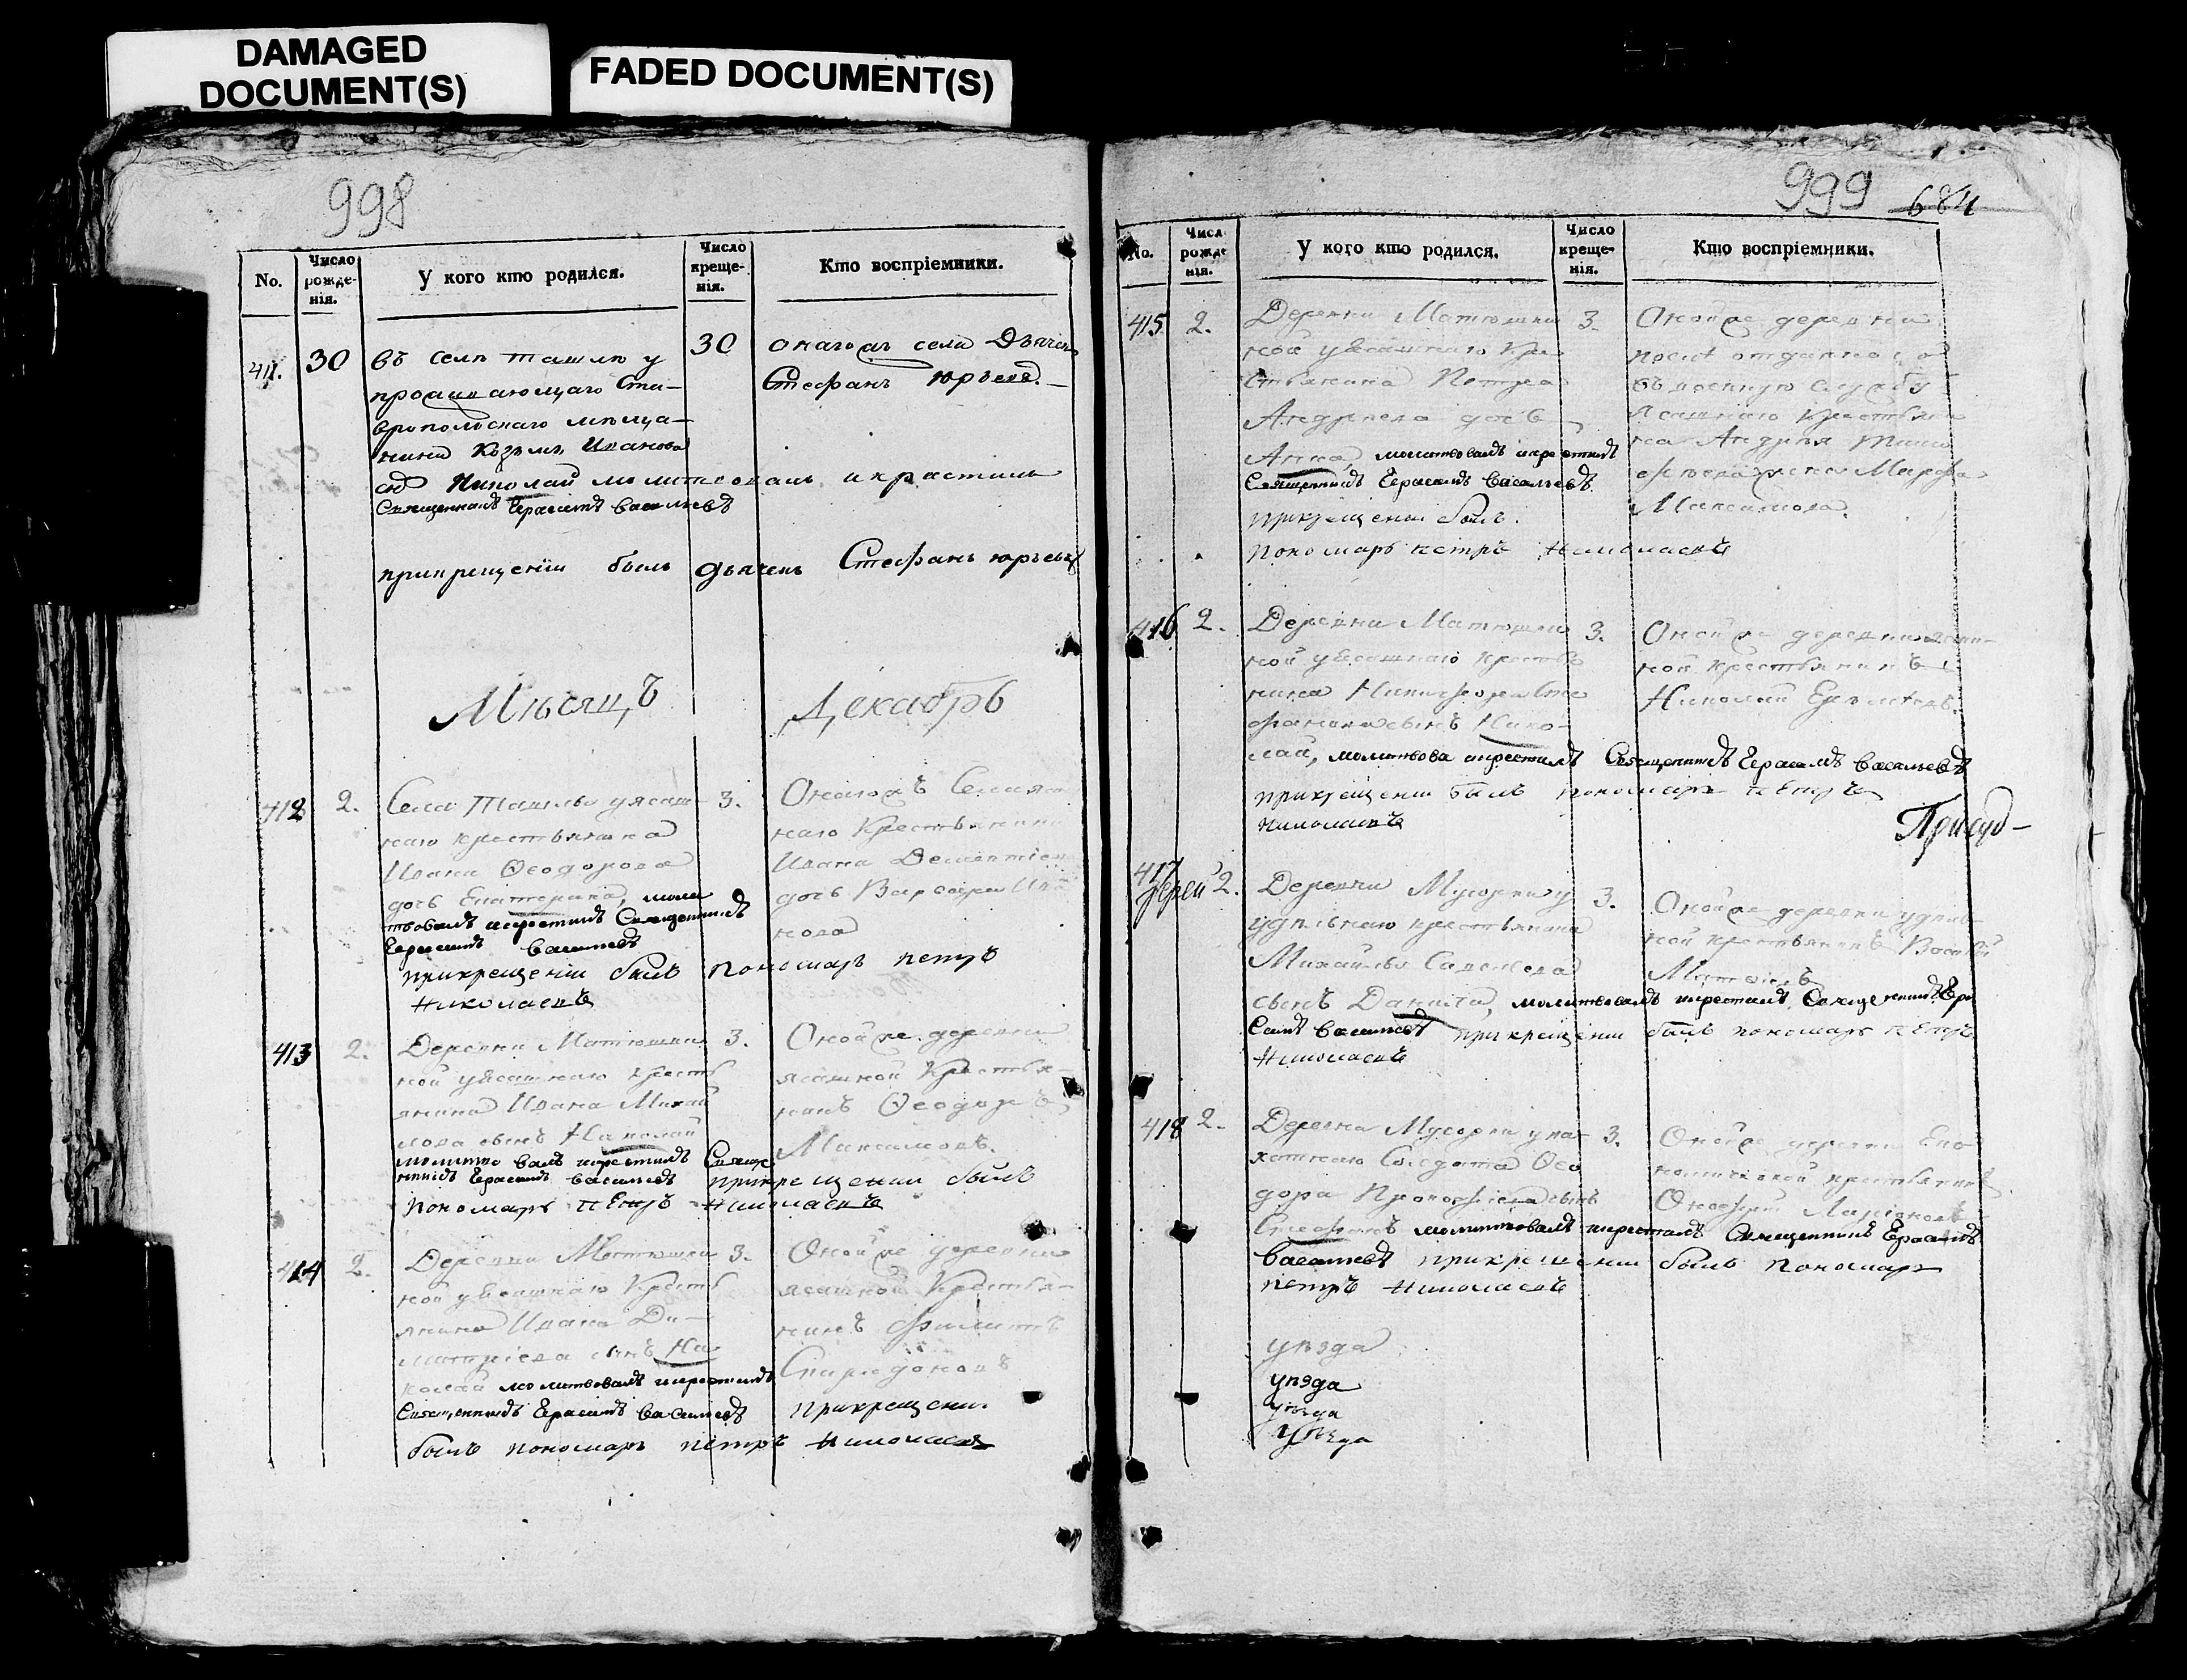 DAMAGED
DOCUMENT(S)
FADED DOCUMENT(S)
998
No.
Число рожденія.
У кого кто родился.
Число крещенія.
Кто воспріемники.
411.
30
въ селѣ ташлѣ у
проживающаго Ста-
вропольскаго мѣща-
нина Козьмы Иванова
сынъ Николай молитвовалъ и крестилъ
Священникъ Герасимъ Васильевъ
30
онагожъ села Дьячекъ
Стефанъ юрьевъ.
прикрещеніи былъ дьячекъ Стефанъ юрьевъ
Мѣсяцъ Декабрь
412
2.
Села Ташлы уясаш-
наго крестьянина
Ивана Ѳеодорова
дочь Екатерина, моли
твовалъ икрестилъ Священникъ
Герасимъ Васильевъ
3.
Онагожъ Села
наго Крестьянина
Ивана Дементіева
дочь Варвара
прикрещеніи былъ пономарь петръ
Николаевъ
413
2.
Деревни Матюшки
ной уясашнаго кресть
янина Ивана Михай
лова сынъ Николай
молитвовалъ икрестилъ Священ
никъ Герасимъ Васильевъ
3.
Онойже деревни
ясашной Крестья-
нинъ Ѳеодоръ
Максимовъ.
прикрещеніи былъ
пономарь петръ Николаевъ
414
2.
Деревни Матюшки
ной уясашнаго Кресть
янина Ивана Ди-
митріева сынъ Ни
колай молитвовалъ икрестилъ
Священникъ Герасимъ Васильевъ
3.
Онойже деревни
ясашной Крестья-
нинъ Филипъ
Спиридоновъ
прикрещени.
былъ пономарь петръ Николаевъ
999
684
No.
Число рожденія.
У кого кто родился.
Число крещенія.
Кто воспріемники.
415
2.
Деревни Матюшки
ной уясашнаго Кре
стьянина Петра
Андреева дочь
Анна, молитвовалъ икрестилъ
Священникъ Герасимъ Васильевъ
прикрещени былъ.
пономарь петръ Николаевъ
3.
Онойже деревни
отданнаго
въ военную службу
ясашнаго крестьяни
на Андрея
жена Марфа
Максимова.
416
2.
Деревни Матюшки
ной уясашнаго кресть
нина Никифора Сте
фанова сынъ Нико-
лай, молитвова икрестилъ Священникъ Герасимъ Васильевъ
прикрещени былъ пономарь петръ
Николаевъ
3.
Онойже деревни ясаш-
ной крестьянинъ
Николай
417
2.
Деревни Мусорки у
удѣльнаго крестьянина
Михайлы Савельева
сынъ Данила, молитвовалъ икрестилъ Священникъ Гера
симъ Васильевъ прикрещеніи былъ пономарь петръ
Николаевъ
3.
Онойже деревни удѣль-
ной крестьянинъ
418
2.
Деревни Мусорки
Солдата Ѳео
дора Прокофьева сынъ
Стефанъ молитвовалъ икрестилъ Священникъ Герасимъ
Васильевъ прикрещеніи былъ пономарь
петръ Николаевъ
3.
Онойже деревни Эко
номической крестьянинъ
Онофрій Ларіоновъ
уѣзда
уѣзда
уѣзда
уѣзда